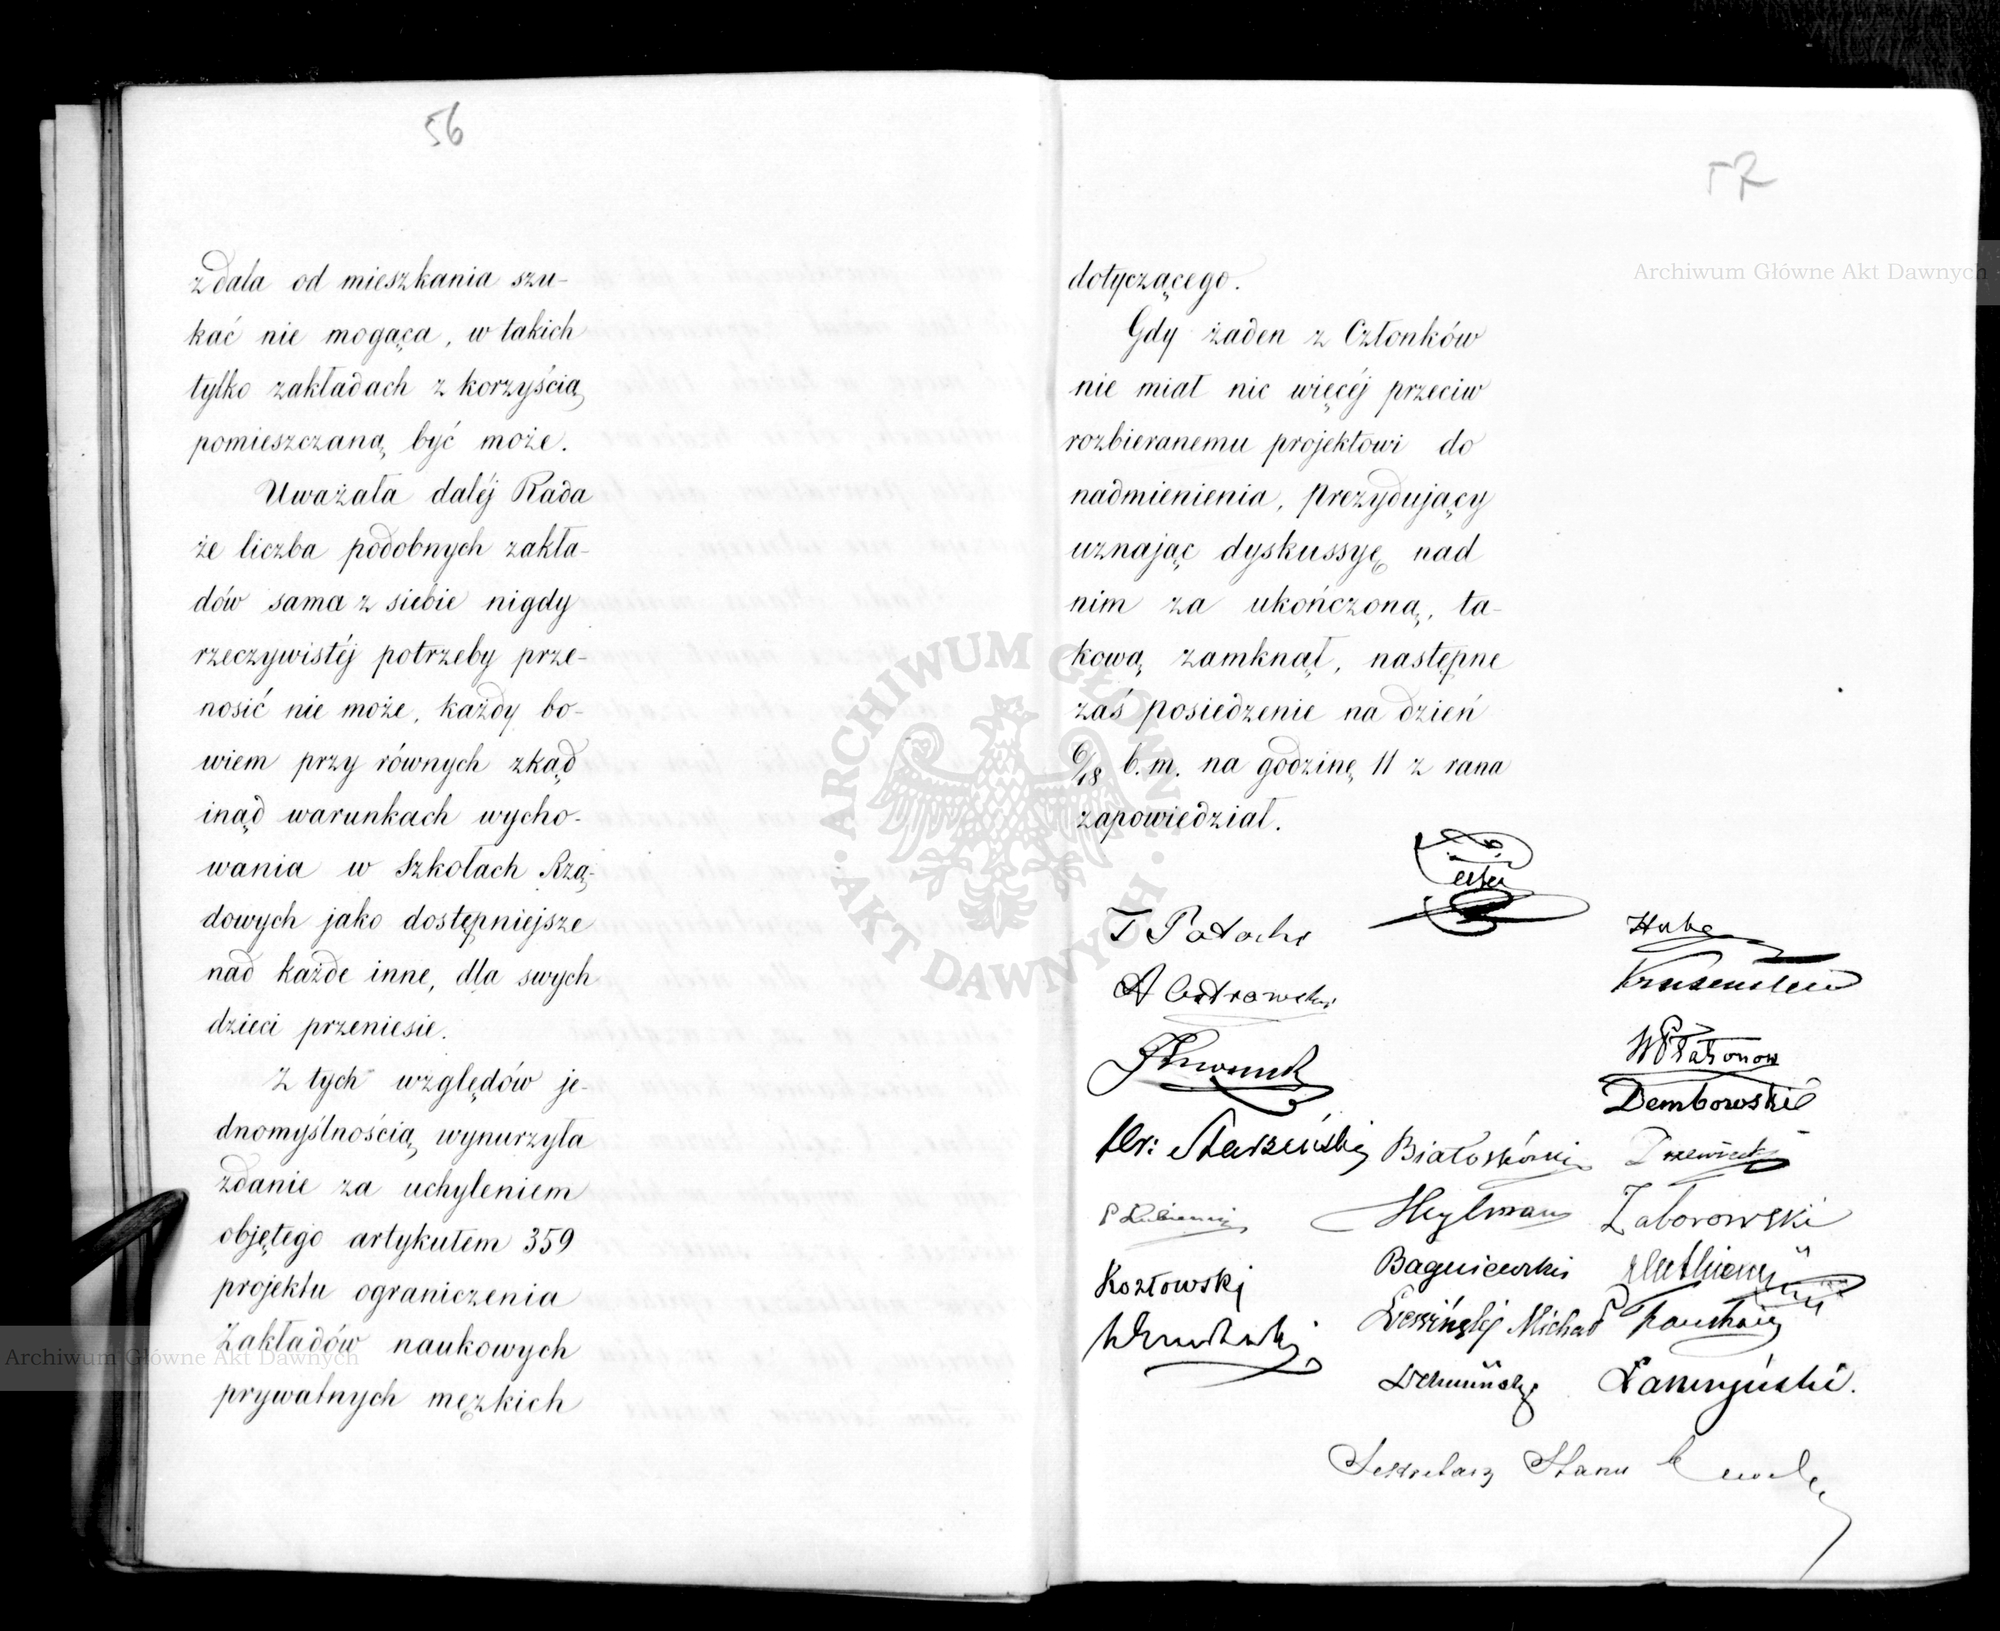 56
zdala od mieszkania szu-
kać nie mogąca, w takich
tylko zakładach z korzyścią
pomieszczaną być może.
Uważała daléj Rada
że liczba podobnych zakła-
dów sama z siebie nigdy
rzeczywistéj potrzeby prze-
nosić nie może, każdy bo-
wiem przy równych zkąd
inąd warunkach wycho-
wania w Szkołach Rzą-
dowych jako dostępniejsze
nad każde inne, dla swych
dzieci przeniesie.
Z tych względów je-
dnomyślnością wynurzyła
zdanie za uchyleniem
objętego artykułem 359
projektu ograniczenia
Zakładów naukowych
prywatnych męzkich
57
dotyczącego.
Gdy żaden z Członków
nie miał nic więcéj przeciw
rozbieranemu projektowi do
nadmienienia, Prezydujący
uznając dyskussyę nad
nim za ukończoną, ta-
kową zamknął, następne
zaś posiedzenie na dzień
6/18 b.m. na godzinę 11 z rana
zapowiedział.
T Potocki
Hube
A Ostrowski
Kruzenstern
Platonow
Dembowski
Hr: Starzeński Białoskórski Drzewiecki
P Łubieński Heylman Zaborowski
Kozłowski Bagniewski
Michał
Łaszczyński.
Sekretarz Stanu
ARCHIWUM GŁÓWNE AKT DAWNYCH
Archiwum Główne Akt Dawnych
Archiwum Główne Akt Dawnych